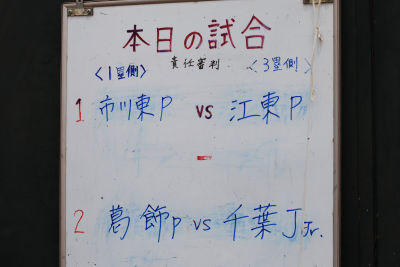 本日の試合
<1塁側> 責任審判 <3塁側>
1 市川東P vs 江東P
2 葛飾P vs 千葉Jr.